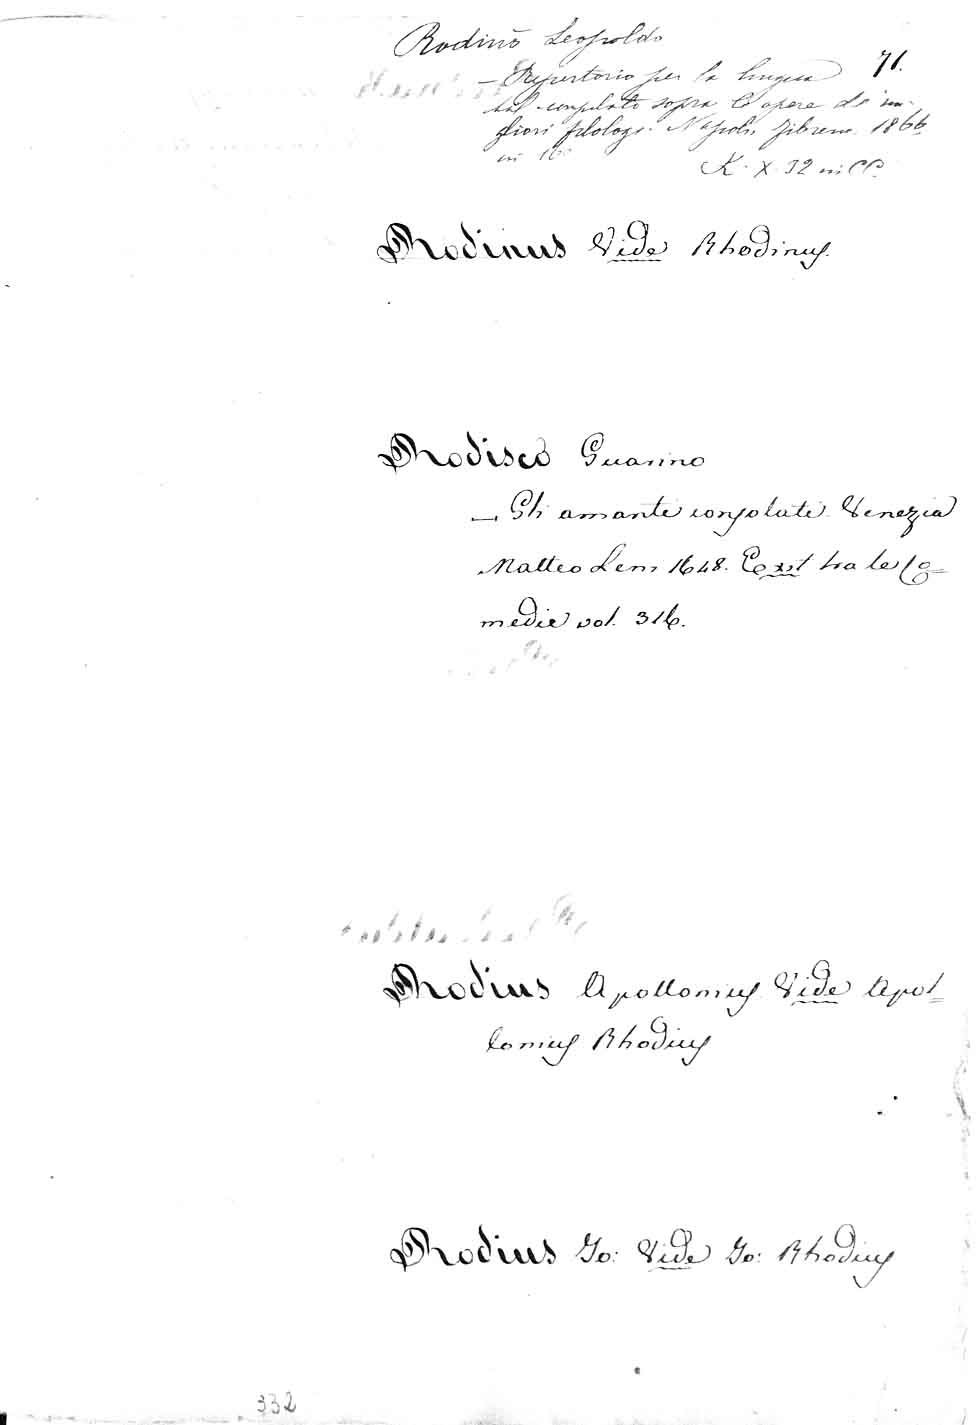 71.
Rodinò Leopoldo
— Repertorio per la lingua
ital. compilato sopra le opere de' mi-
gliori filologi. Napoli, Fibreno 1866
in 16°
K. X. 32 in CC.
Rodinus Vide Rhodinus.
Rodisco Guarino
— Gli amante consolate. Venezia
Matteo Leni 1648. Exst tra le Co=
medie vol. 316.
Rodius Apollonius Vide Apol=
lonius Rhodius
Rodius Jo: Vide Jo: Rhodius
332